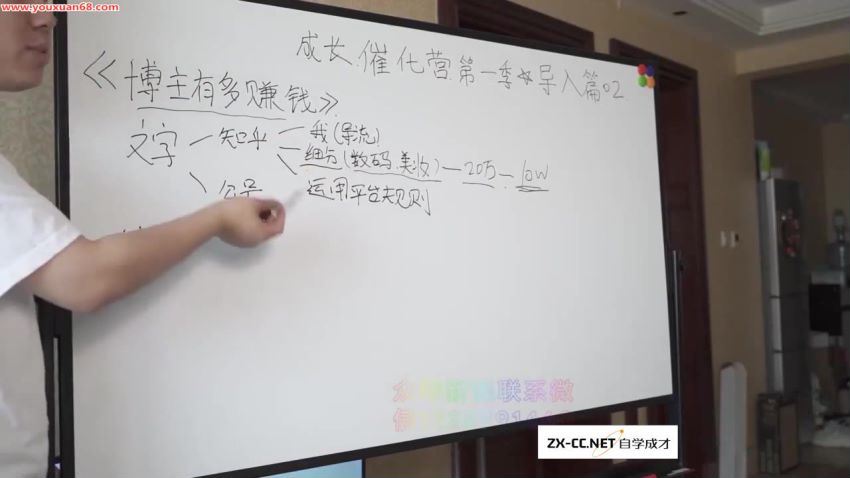 www.youxuan68.com
成长催化营第一季☆导入篇02
《博主有多赚钱》
文字 知乎 我(导流)
细分(数码.美妆)—20万—low
运用平台规则
公号
联系微
ZX-CC.NET 自学成才